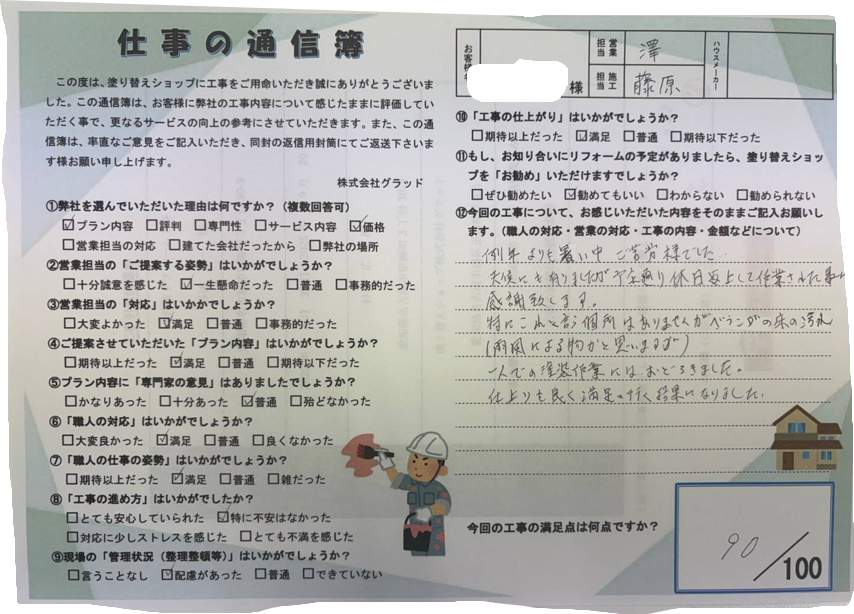 仕事の通信簿
この度は、塗り替えショップに工事をご用命いただき誠にありがとうございま
した。この通信簿は、お客様に弊社の工事内容について感じたままに評価してい
ただく事で、更なるサービスの向上の参考にさせていただきます。また、この通
信簿は、率直なご意見をご記入いただき、同封の返信用封筒にてご返送下さいま
す様お願い申し上げます。
株式会社グラッド
①弊社を選んでいただいた理由は何ですか?（複数回答可）
☑プラン内容 □評判 □専門性 □サービス内容 ☑価格
□営業担当の対応 □建てた会社だったから □弊社の場所
②営業担当の「ご提案する姿勢」はいかがでしょうか?
□十分誠意を感じた ☑一生懸命だった □普通 □事務的だった
③営業担当の「対応」はいかかでしょうか?
□大変よかった ☑満足 □普通 □事務的だった
④ご提案させていただいた「プラン内容」はいかがでしょうか?
□期待以上だった ☑満足 □普通 □期待以下だった
⑤プラン内容に「専門家の意見」はありましたでしょうか?
□かなりあった □十分あった ☑普通 □殆どなかった
⑥「職人の対応」はいかがでしょうか?
□大変良かった ☑満足 □普通 □良くなかった
⑦「職人の仕事の姿勢」はいかがでしょうか?
□期待以上だった ☑満足 □普通 □雑だった
⑧「工事の進め方」はいかがでしたか?
□とても安心していられた ☑特に不安はなかった
□対応に少しストレスを感じた □とても不満を感じた
⑨現場の「管理状況（整理整頓等）」はいかがでしょうか?
□言うことなし ☑配慮があった □普通 □できていない
お客様名
様
営業担当
澤
施工担当
藤原
ハウスメーカー
⑩「工事の仕上がり」はいかがでしょうか?
□期待以上だった ☑満足 □普通 □期待以下だった
⑪もし、お知り合いにリフォームの予定がありましたら、塗り替えショッ
プを「お勧め」いただけますでしょうか?
□ぜひ勧めたい ☑勧めてもいい □わからない □勧められない
⑫今回の工事について、お感じいただいた内容をそのままご記入お願いし
ます。（職人の対応・営業の対応・工事の内容・金額などについて）
例年よりも暑い中 ご苦労様でした。
天候にも有りましたが予定通り休日返上して作業された事
感謝致します。
特にこれと言う個所はありませんがベランダの床の汚れ
(雨風による物かと思いますが)
一人での塗装作業にはおどろきました。
仕上りも良く満足の行く結果になりました。
今回の工事の満足点は何点ですか?
90/100